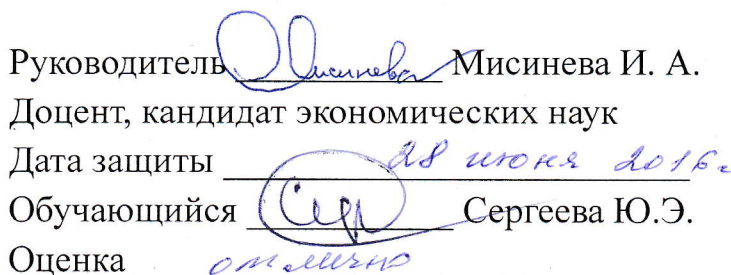 Руководитель Мисинева Мисинева И. А.
Доцент, кандидат экономических наук
Дата защиты 28 июня 2016г
Обучающийся Сергеева Ю.Э.
Оценка отлично